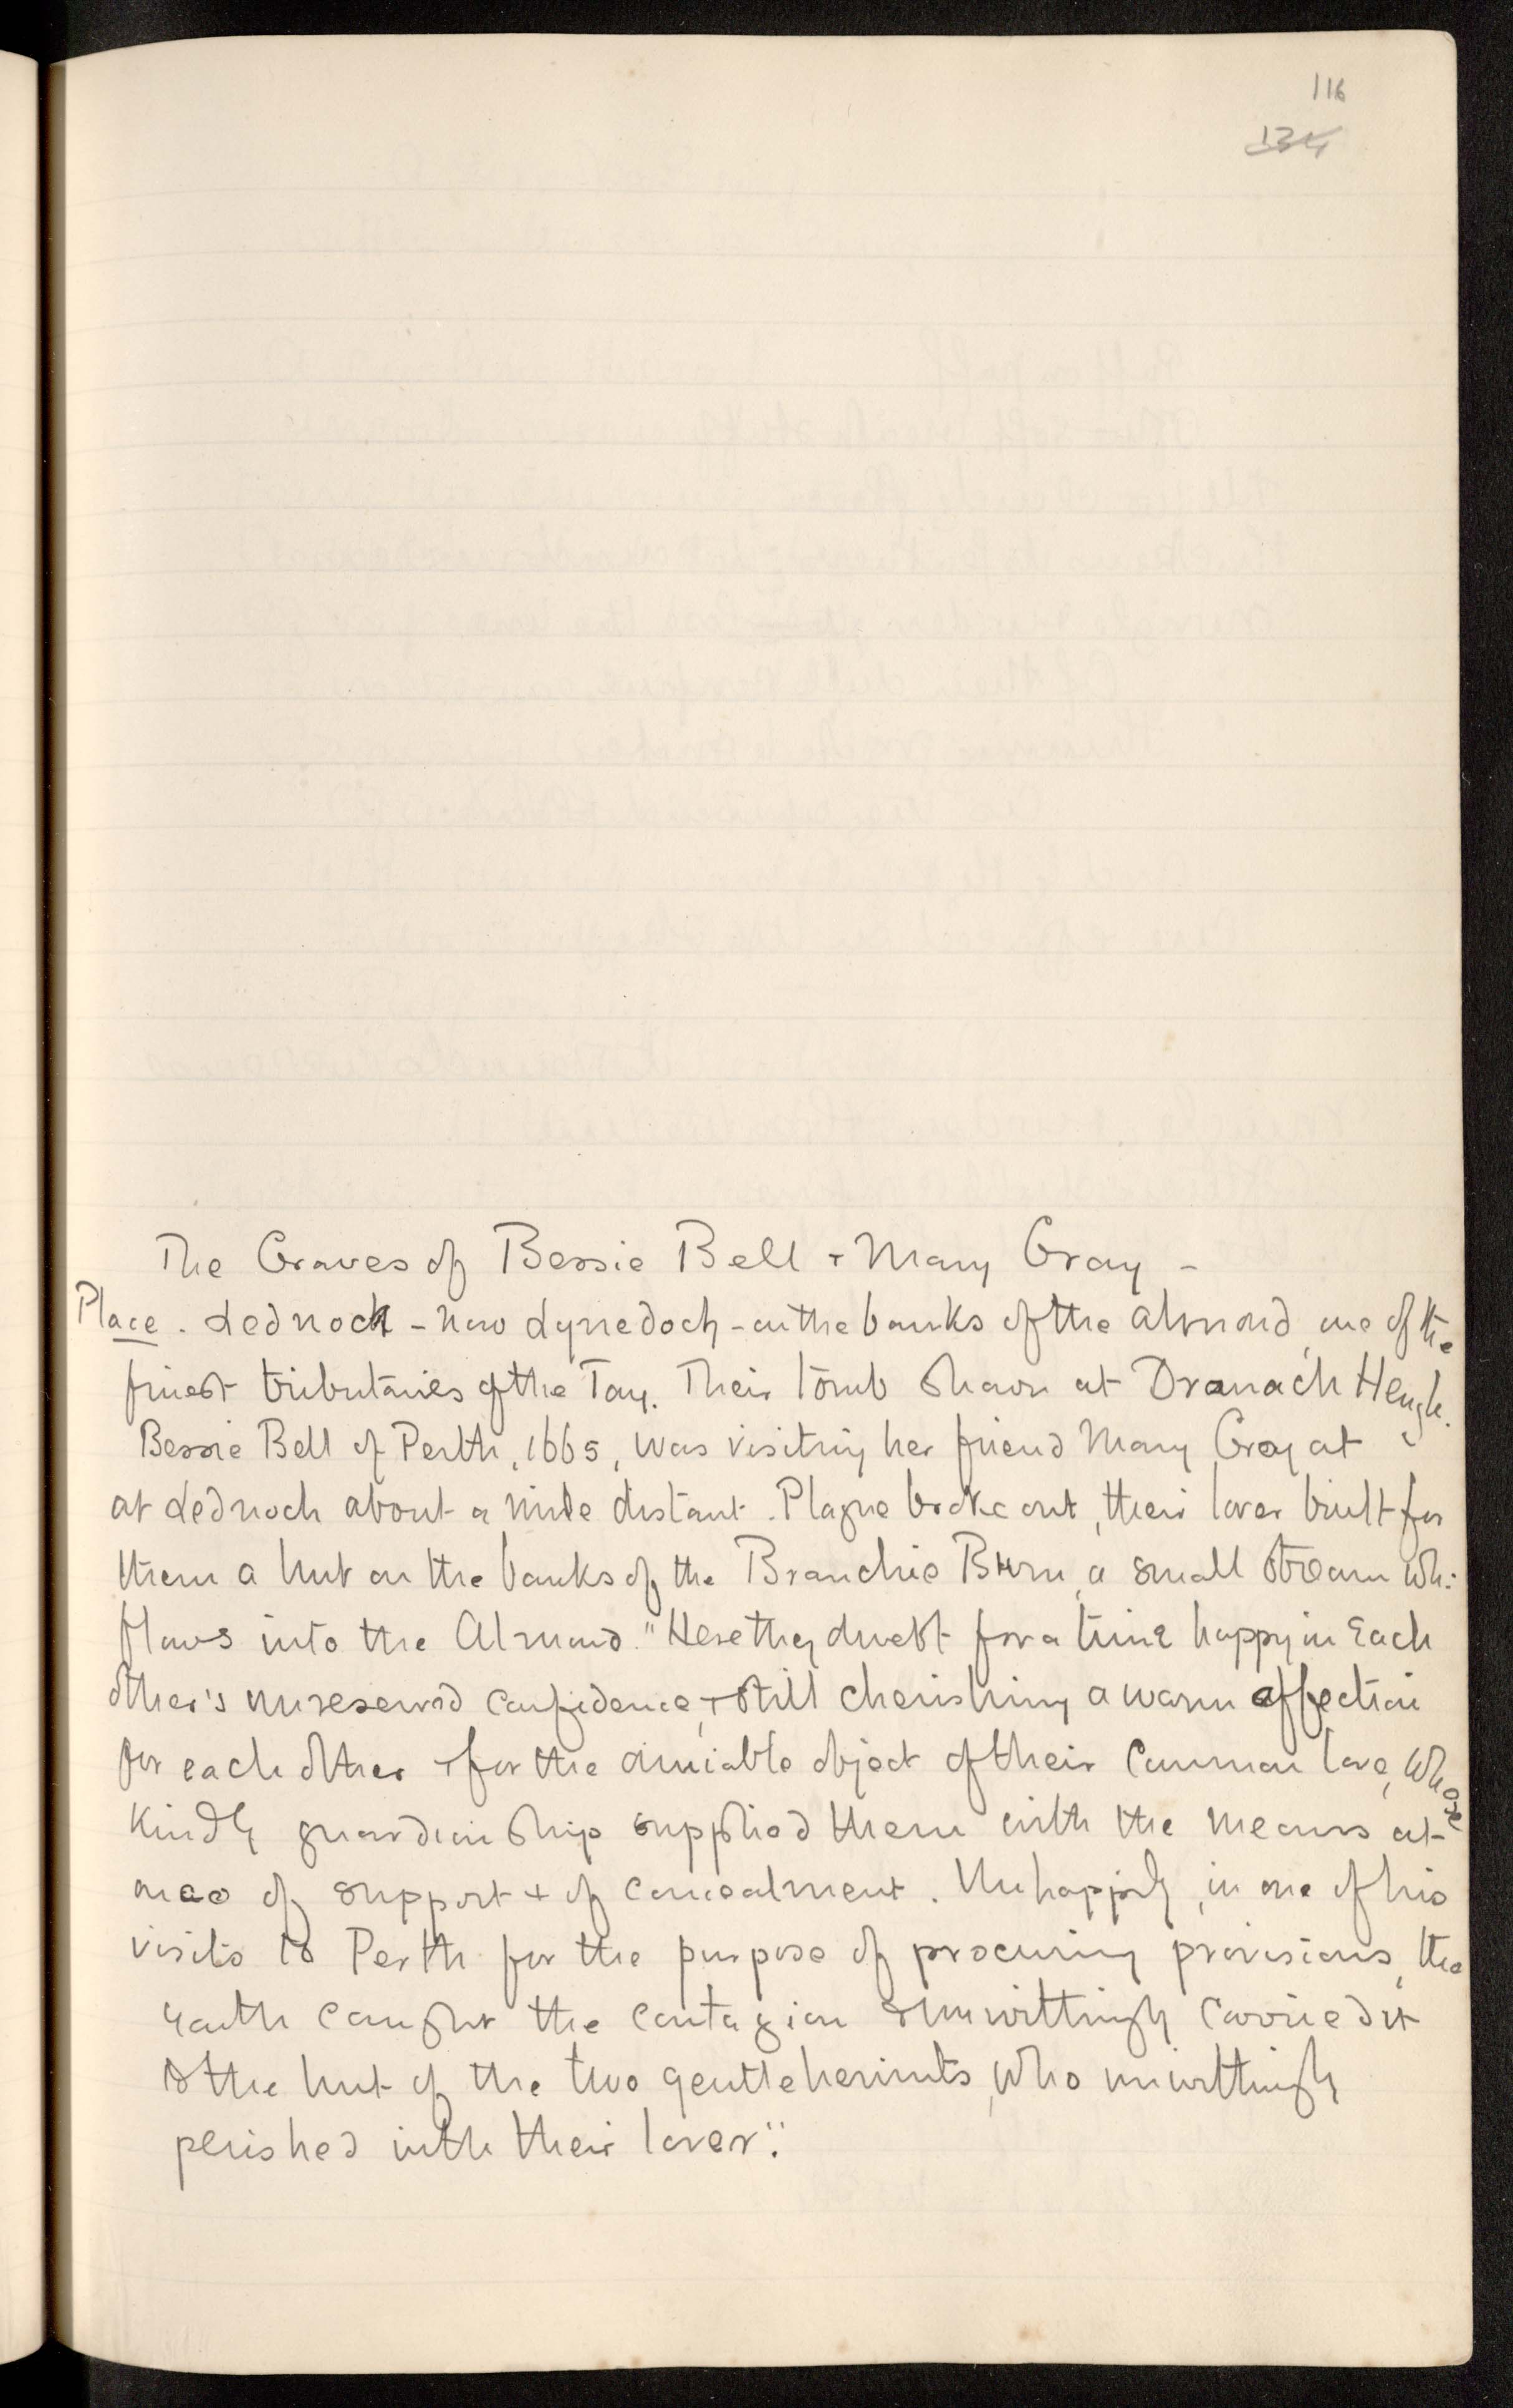 116
134
The Graves of Bessie Bell + Mary Gray -
Place. Lednock - now Lynedoch - on the banks of the Almond, one of the
finest tributaries of the Tay. Their tomb shown at Dranach Heugh.
Bessie Bell of Perth, 1665, was visiting her friend Mary Gray at
at Lednoch about a mile distant. Plague broke out, their lover built for
them a hut on the banks of the Branchie Burn, a small stream wh:
flows into the Almond. "Here they dwelt for a time happy in each
other's unreserved confidence, + still cherishing a warm affection
for each other + for the amiable object of their common love, whose
kindly guardianship supplied them with the means at
once of support + of concealment. Unhappily, in one of his
visits to Perth for the purpose of procuring provisions, the
youth caught the contagion & unwittingly carried it
to the hut of the two gentle hermits, who unwittingly
perished with their lover."